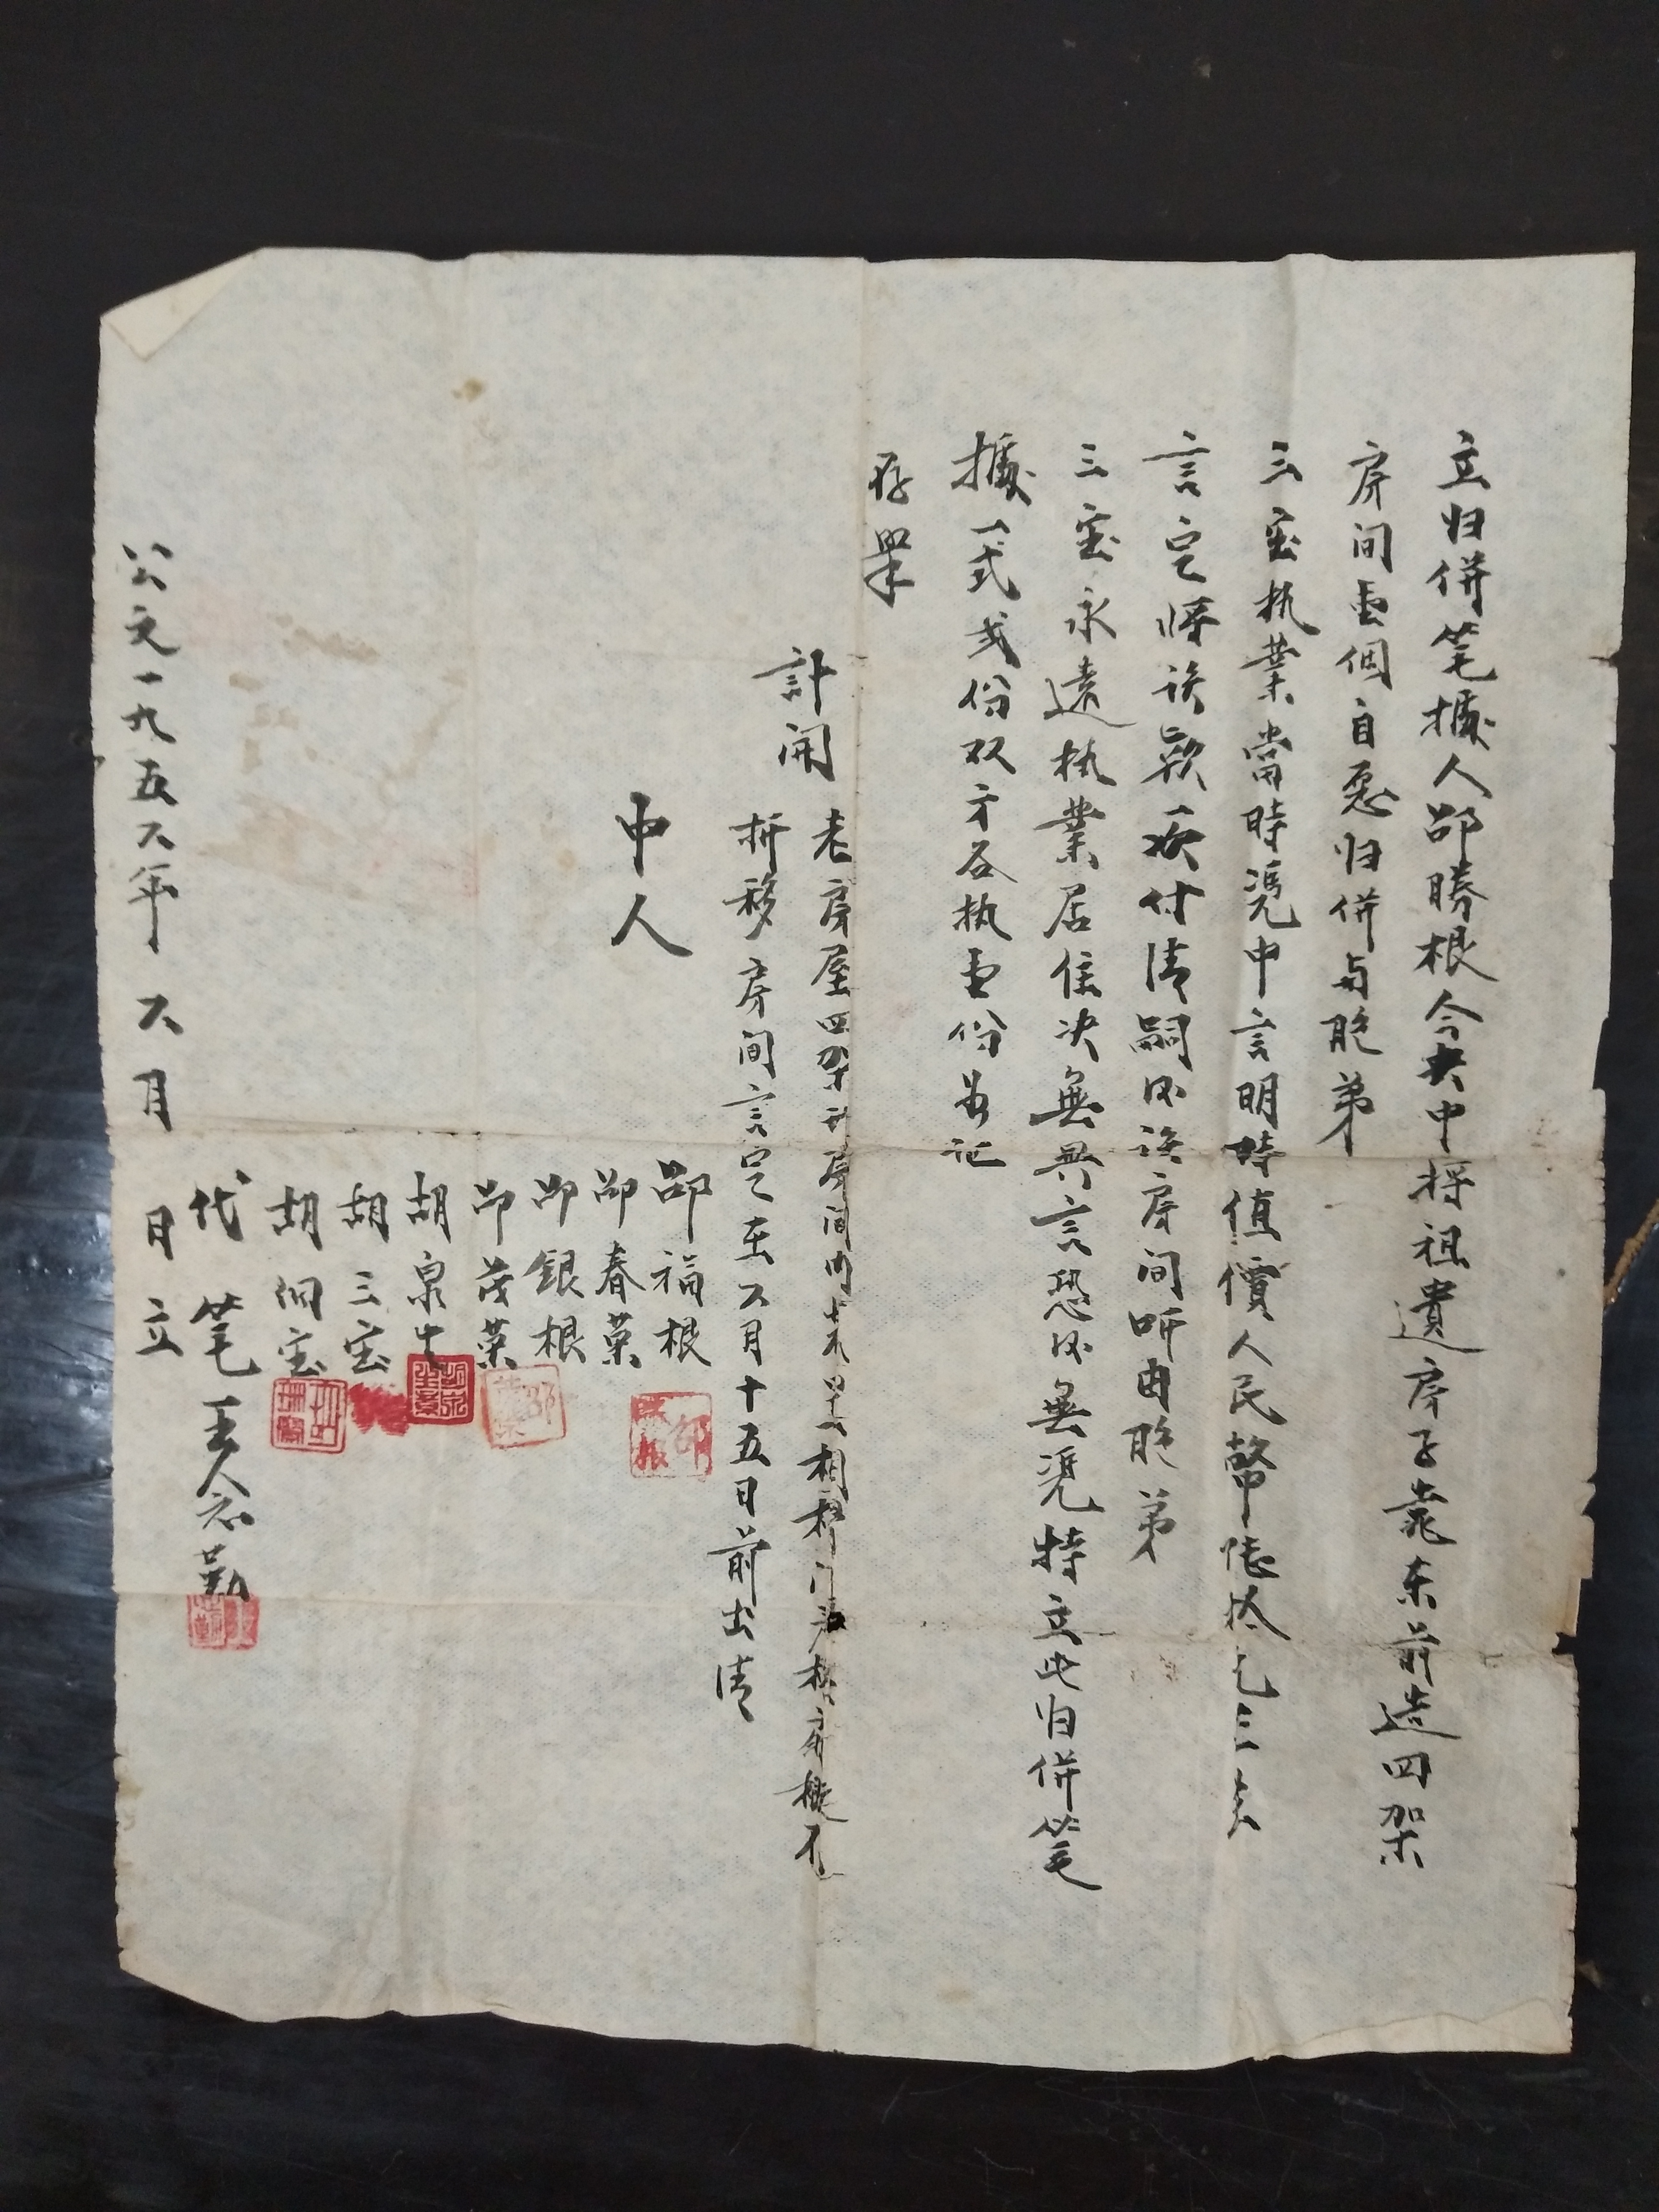 立归併笔據人邵勝根今央中将祖遺房子靠东前造四架
房间壹個自愿归併与胞弟
三宝执業當時憑中言明時值價人民幣陆拾元三面
言定将该款一次付清嗣后该房间听由胞弟
三宝永遠执業居住决無異言恐后無憑特立此归併笔
據一式弍份双方各执壹份为证
存畢
計開 老房屋四架 房间内 相 门 不
拆移房间言定在六月十五日前出清
中人
邵福根
邵春菓
邵銀根
邵茂菓
胡泉生
胡三宝
胡 宝
代笔 王念勤
公元一九五六年六月 日立